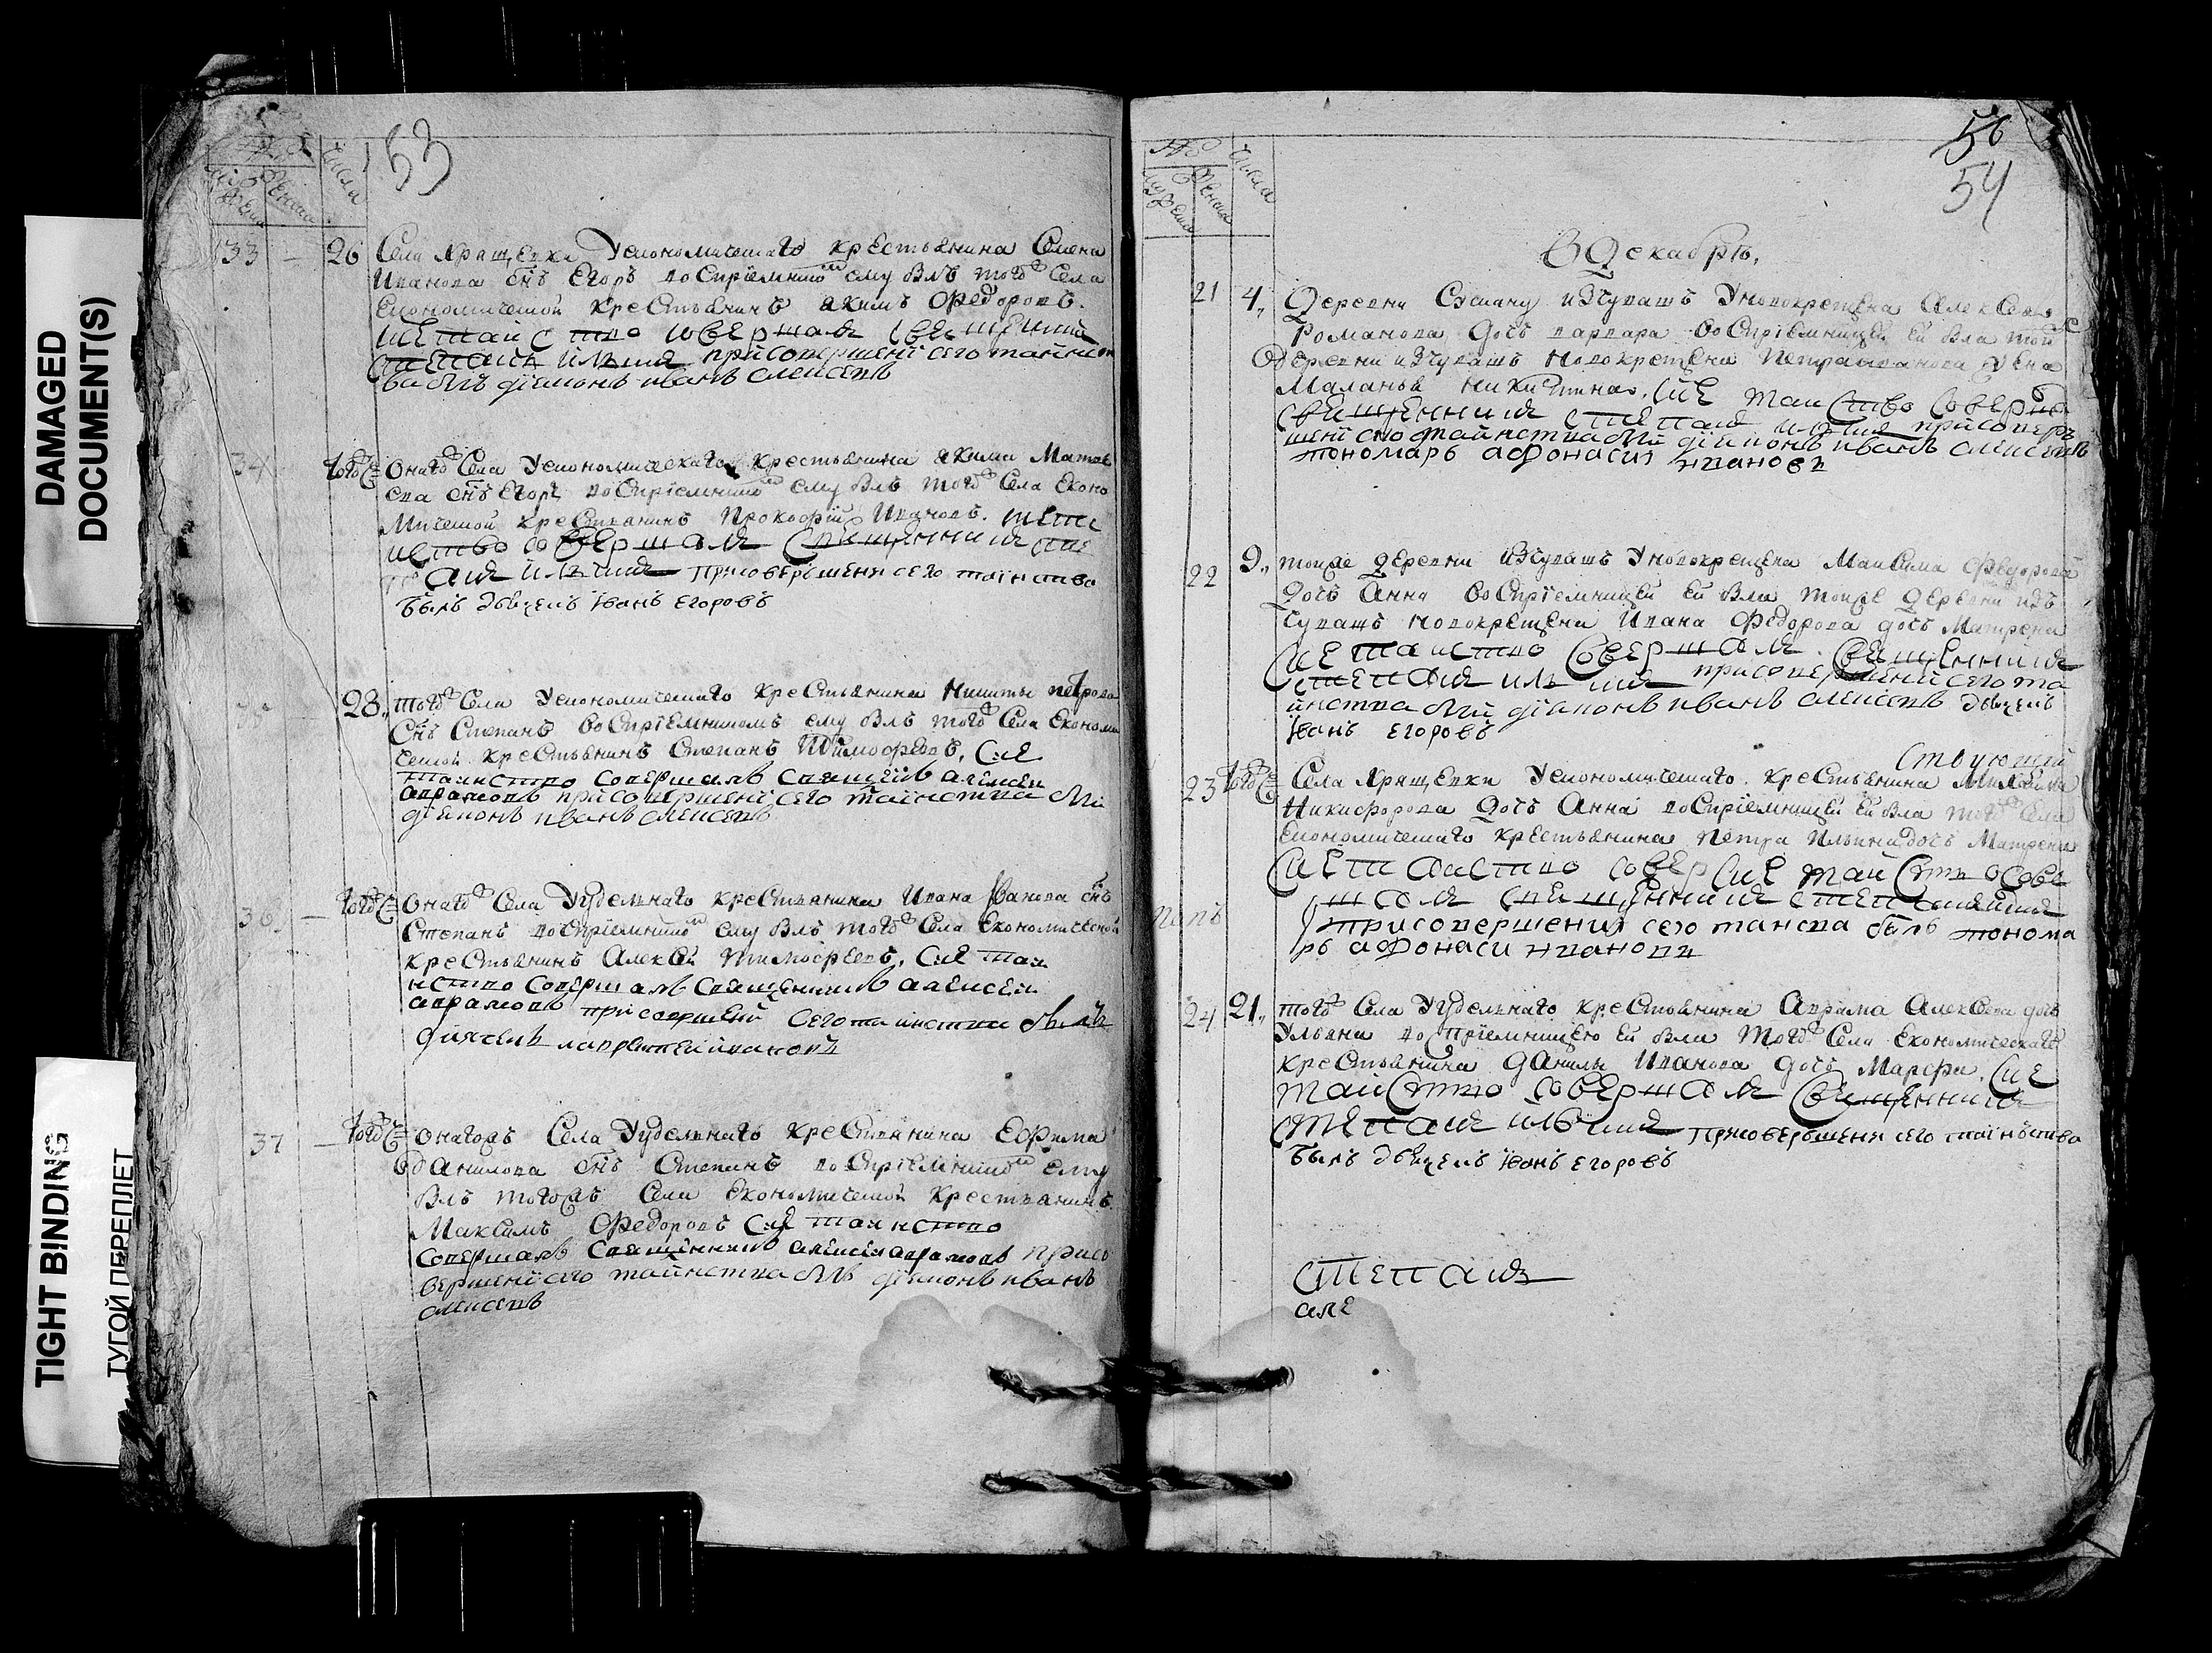 DAMAGED
DOCUMENT(S)
TIGHT BINDING
ТУГОЙ ПЕРЕПЛЕТ
53
числа
33 — 26
Села Хрящевки Уекономическаго крестьянина Семена
Иванова снъ Егоръ воспрiемникомъ ему былъ тогож Села
Економической крестьянинъ Акимъ Федоровъ.
сие таиство совершалъ священникъ
Стефанъ Ильинъ при совершенi сего таинст
ва былъ дiаконъ иванъ алексеевъ
34
Оногож Села Уекономическаго крестьянина Акима Матве
ева снъ Егоръ воспрiемникомъ ему былъ тогож Села Еконо
мической крестьянинъ Прокофiй Ивановъ.
совершалъ священникъ
при совершени сего таинства
былъ дьячекъ Iванъ Егоровъ
35 28.
тогож Села Уекономическаго крестьянина Никиты петрова
Снъ Степанъ воспрiемникомъ ему былъ тогож Села Економи
ческой крестьянинъ Степанъ Тимофеевъ, Сие
таинство совершалъ священикъ алексеи
аврамовъ при совершенi сего таинства былъ
дiаконъ иванъ алексеевъ
36 —
Оногож Села Уудельнаго крестьянина Ивана снъ
Степанъ воспрiемникомъ ему былъ тогож Села Економической
крестьянинъ Алексей Тимофеевъ. Сие таи
нство совершалъ священникъ алексеи
аврамовъ при совершенi сего таинства былъ
дiячекъ лаврентей ивановъ
37 —
Оногожъ Села Уудельнаго крестьянина Ефима
Данилова снъ Степанъ воспрiемникомъ ему
былъ тогожъ Села Економической крестьянинъ
Максимъ Федоровъ Сие таинство
совершалъ священникъ алексеи аврамовъ при со
вершенi сего таинства былъ дiаконъ иванъ
алексеевъ
56
54
числа
В Декабрѣ.
21 4.
Деревни изЧувашъ Уновокрещена Алексея
Романова дочь варвара воспрiемницей ей была той ж
деревни изЧувашъ новокрещена Петра Иванова жена
Маланья Никитина. Сие таиство соверша
священникъ стефанъ ильинъ при совер
шенi сего таинства былъ дiаконъ иванъ алексеевъ
пономарь афонасиi ивановъ
22 9.
тойже деревни изЧувашъ Уновокрещена Максима Федорова
дочь Анна воспрiемницей ей была тойже деревни изъ
Чувашъ новокрещена Ивана Федорова дочь Матрена
Сие таиство совершалъ священникъ
стефанъ ильинъ при совершенiй сего та
инства былъ дiаконъ иванъ алексеевъ дьячекъ
Iванъ Егоровъ
ствующий
23
Села Хрящевки Уекономическаго крестьянина
Никифорова дочь Анна воспрiемницей ей была тогож Села
Економическаго крестьянина Петра Ильина дочь Матрена
Сие таиство совер Сие таиство сове
шалъ священникъ стефанъ ильинъ
при совершения сего танства былъ понома
рь афонаси ивановъ
24 21.
тогож Села Уудельнаго крестьянина Аврама Алексеева дочь
Ульяна воспрiемницею ей была тогож Села Економическаго
крестьянина Данилы Иванова дочь Марфа. Сие
таиство совершалъ священникъ
стефанъ ильинъ при совершени сего таiнъства
былъ дьячекъ Iванъ Егоровъ
стефанъ
але